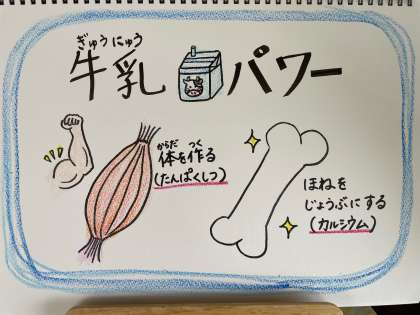 ぎゅうにゅう
牛乳パワー
からだ つく
体を作る
(たんぱくしつ)
ほねを
じょうぶにする
(カルシウム)